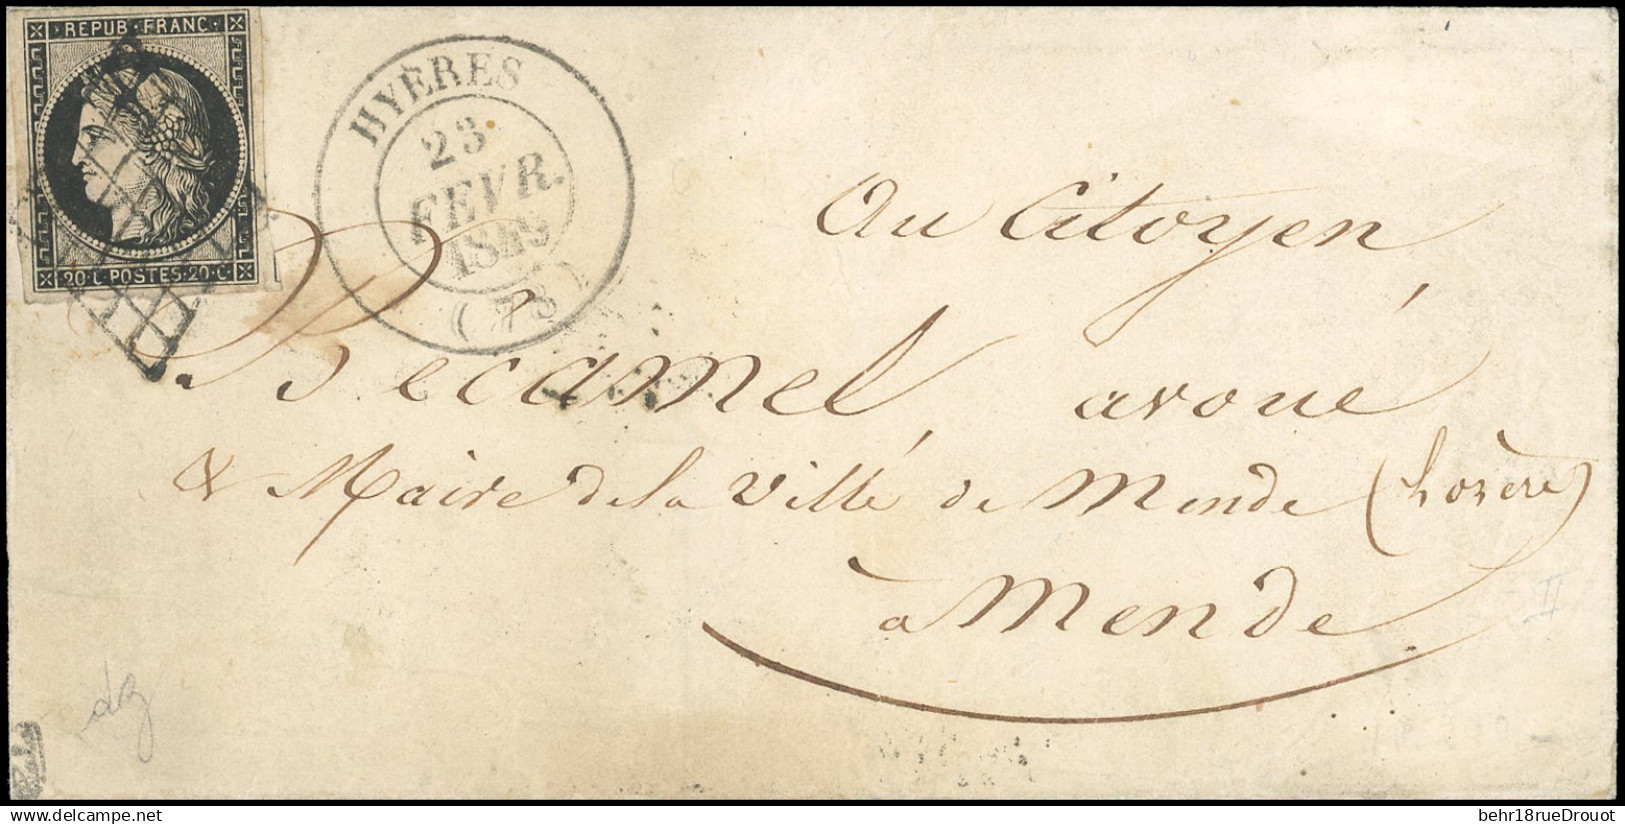 REPUB·FRANC·
20·C·POSTES·20·C·
HYÈRES
23
FEVR.
1849
(78)
Au Citoyen
Becamel, avoué
& Maire de la Ville de Mende (Lozère)
à Mende
II
behr18rueDrouot